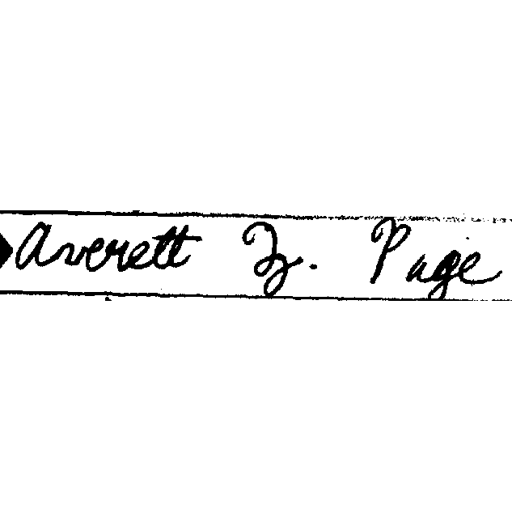 Averett Z. Page